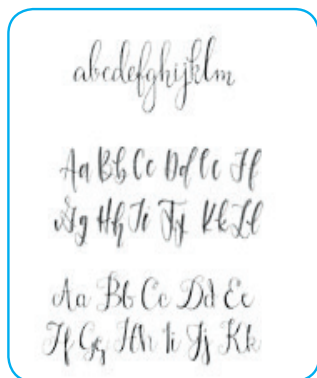 abcdefghijklm
Aa Bb Cc Dd Ee Ff
Gg Hh Ii Jj Kk Ll
Aa Bb Cc Dd Ee
Ff Gg Hh Ii Jj Kk